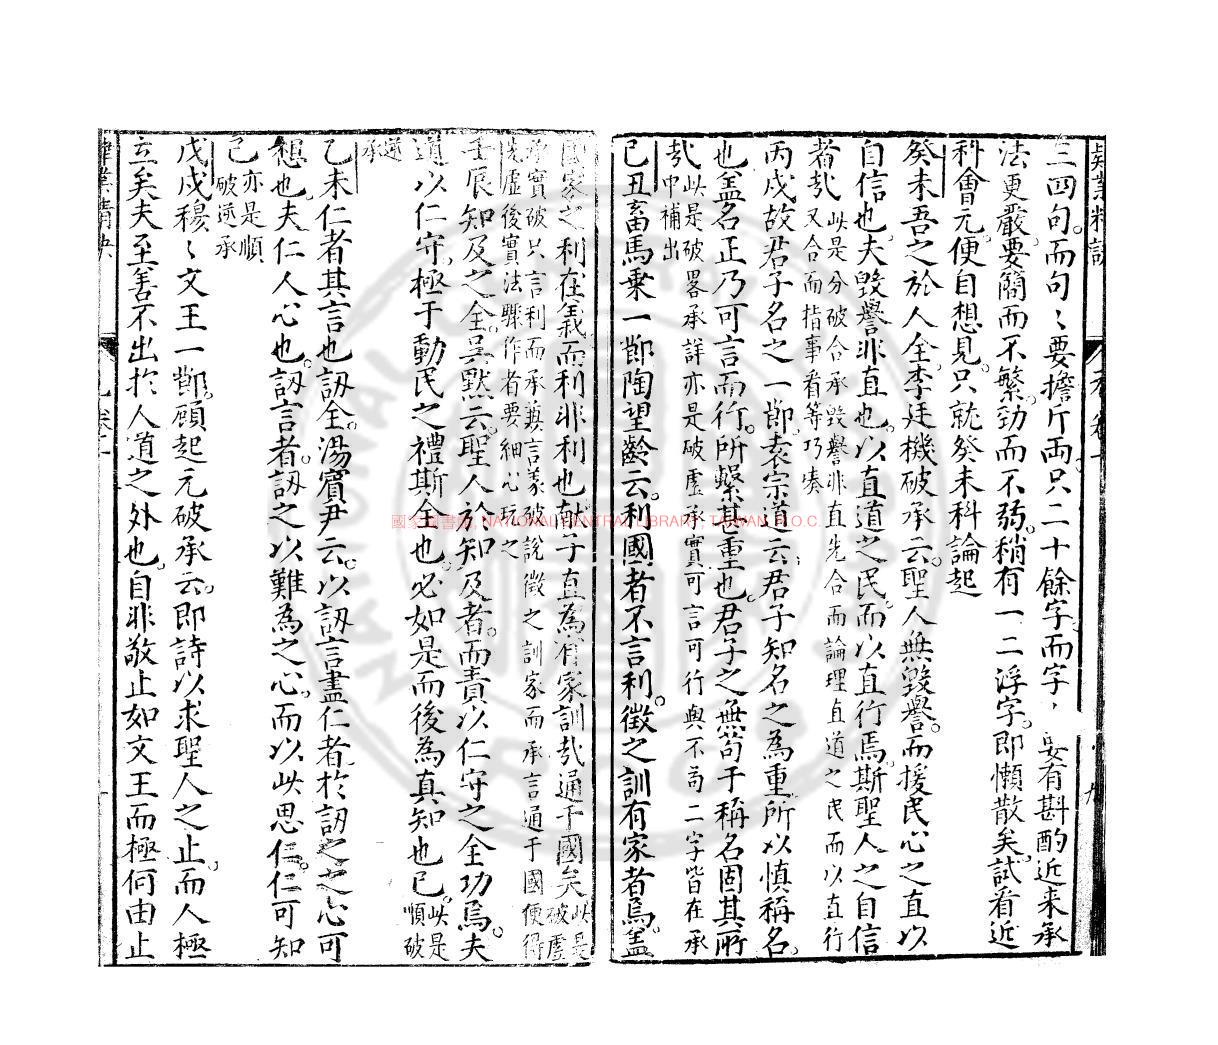 三四句。而句〻要擔斤両只二十餘字。而字〻要有斟酌近来承
法更嚴。要簡而不繁。勁而不弱。稍有一二浮字。即懶散矣。試看近
科會元。便自想見。只就癸未科論起
癸未吾之於人全。李廷機破承云。聖人無毀譽。而援民心之直以
自信也。夫毀譽非直也。以直道之民。而以直行焉。斯聖人之自信
者㢤 此是分破合承毀譽非直先合而論理直道之民而以直行
又合而指事看等巧湊
丙戌故君子名之一節。袁宗道云。君子知名之為重。所以慎稱名
也。盖名正乃可言而行。所繫甚重也。君子之無苟于稱名固其所
㢤 此是破畧承詳亦是破虛承實可言可行與不苟二字皆在承
中補出
己丑畜馬乗一節陶望齡云。利國者不言利。徵之訓有家者焉。盖
國家之利在義。而利非利也献子直為有家訓㢤通于國矣 此是破虛
承實破只言利而承兼言義破說徵之訓家而承言通于國便得
先虛後實法驟作者要細心玩之
壬辰知及之全。吳默云。聖人於知及者。而責以仁守之全功焉。夫
道以仁守。極于動民之禮斯全也。必如是而後為真知也已。 此是順破
逆承
乙未仁者其言也訒全。湯賓尹云。以訒言盡仁者。於訒之之心可
想也。夫仁人心也。訒言者。訒之以難為之心。而以此思仁。仁可知
已 亦是順破逆承
戊戌穆〻文王一節。顧起元破承云。即詩以求聖人之止。而人極
立矣夫至善不出扵人道之外也。自非敬止如文王而極何由止
國家圖書館, NATIONAL CENTRAL LIBRARY, TAIWAN, R.O.C.